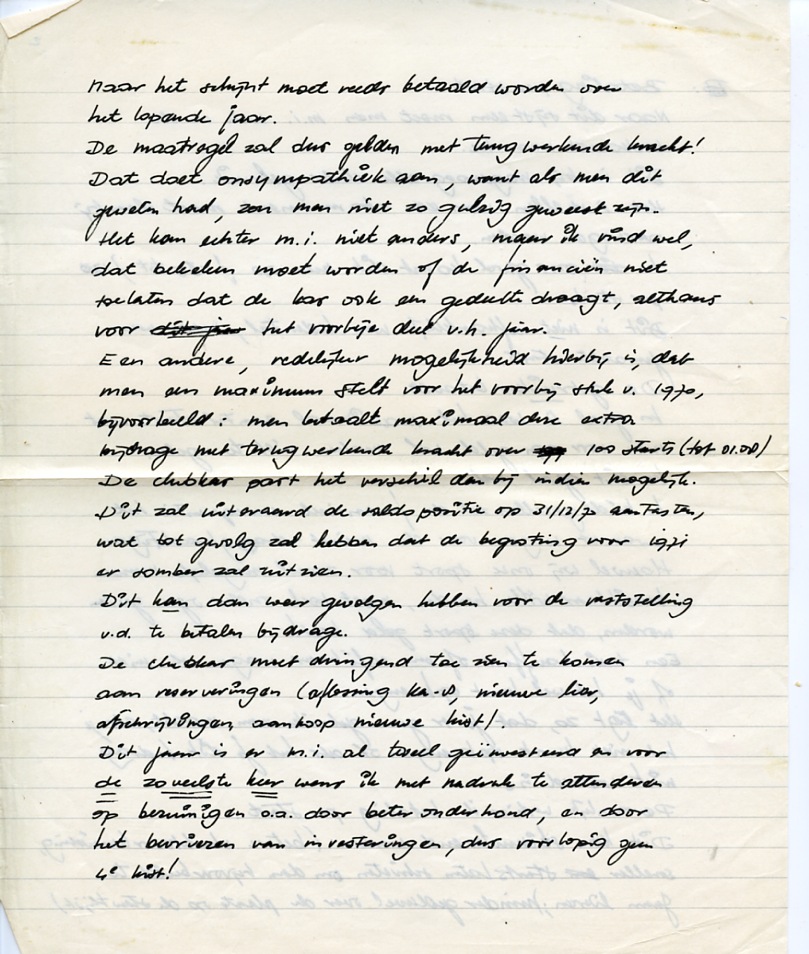 Naar het schijnt moet reeds betaald worden over
het lopende jaar.
De maatregel zal dus gelden met terugwerkende kracht!
Dat doet onsympathiek aan, want als men dit
geweten had, zou men niet zo gulzig geweest zijn.
Het kan echter m.i. niet anders, maar ik vind wel,
dat bekeken moet worden of de financiën niet
toelaten dat de kas ook een gedeelte draagt, althans
voor dit jaar het voorbije deel v.h. jaar.
Een andere, redelijker mogelijkheid hierbij is, dat
men een maximum stelt voor het voorbij stuk v. 1970,
bijvoorbeeld: men betaalt maximaal deze extra
bijdrage met terugwerkende kracht over 100 starts (tot 01.08)
De clubkas past het verschil dan bij indien mogelijk.
Dit zal uiteraard de saldopositie op 31/12/70 aantasten,
wat tot gevolg zal hebben dat de begroting voor 1971
er somber zal uitzien.
Dit kan dan weer gevolgen hebben voor de vaststelling
v.d. te betalen bijdrage.
De clubkas moet dringend toe zien te komen
aan reserveringen (aflossing Ka-8, nieuwe lier,
afschrijvingen, aankoop nieuwe kist).
Dit jaar is er m.i. al teveel geïnvesteerd en voor
de zoveelste keer wens ik met nadruk te attenderen
op bezuinigen o.a. door beter onderhoud, en door
het bevriezen van investeringen, dus voorlopig geen
4e kist!